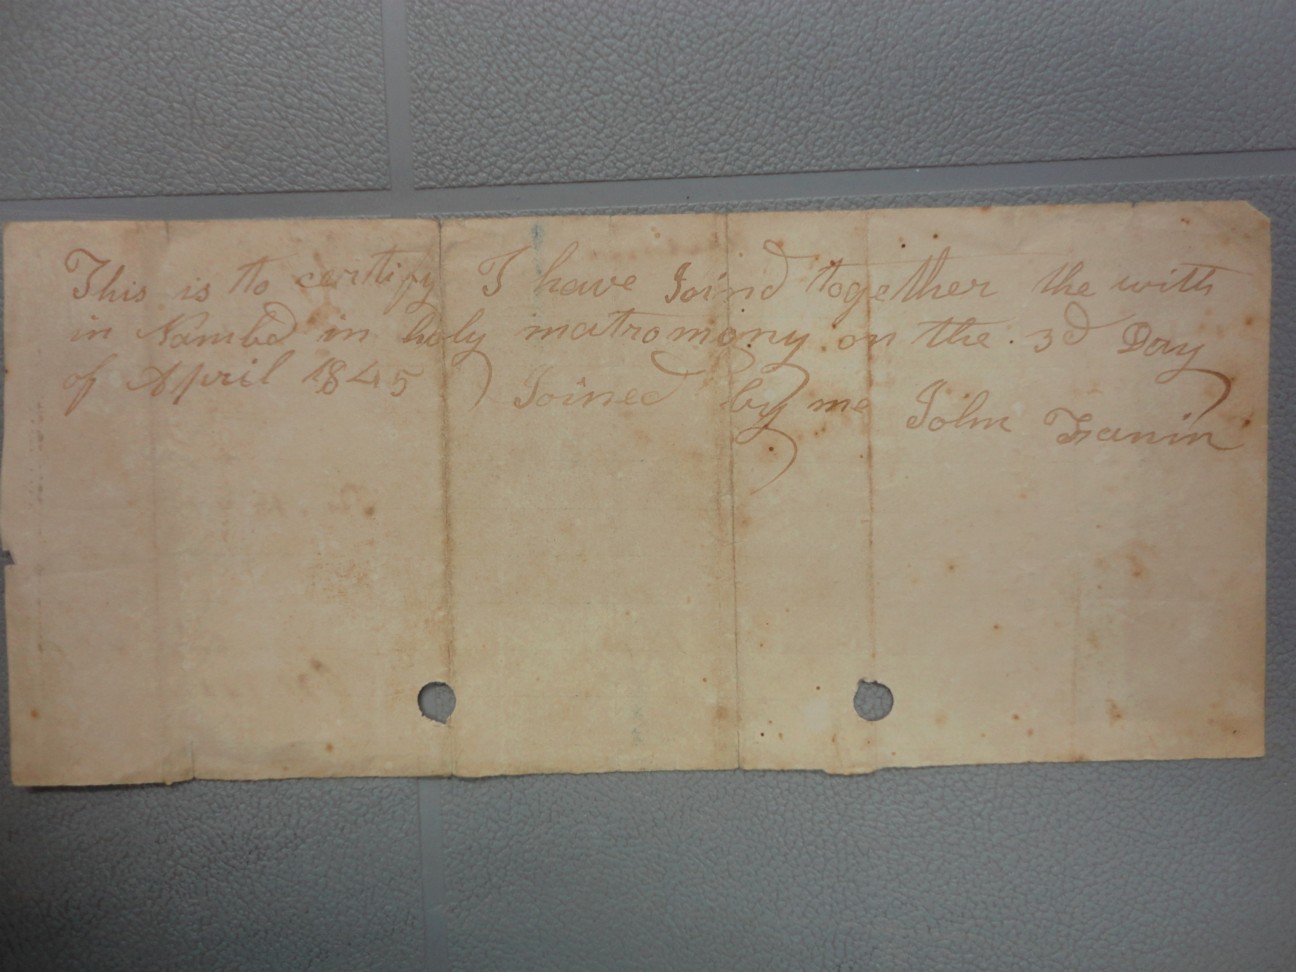 This is to certify I have Joind together the with
in Nambd in holy matromony on the 3d Day
of April 1845 Joined by me John Fanin